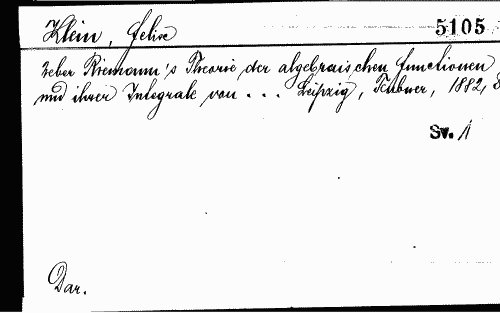 Klein, Felix 5105
Ueber Riemann's Theorie der algebraischen Functionen
und ihrer Integrale von ... Leipzig, Teubner, 1882, 8
Sv. 1
Dar.